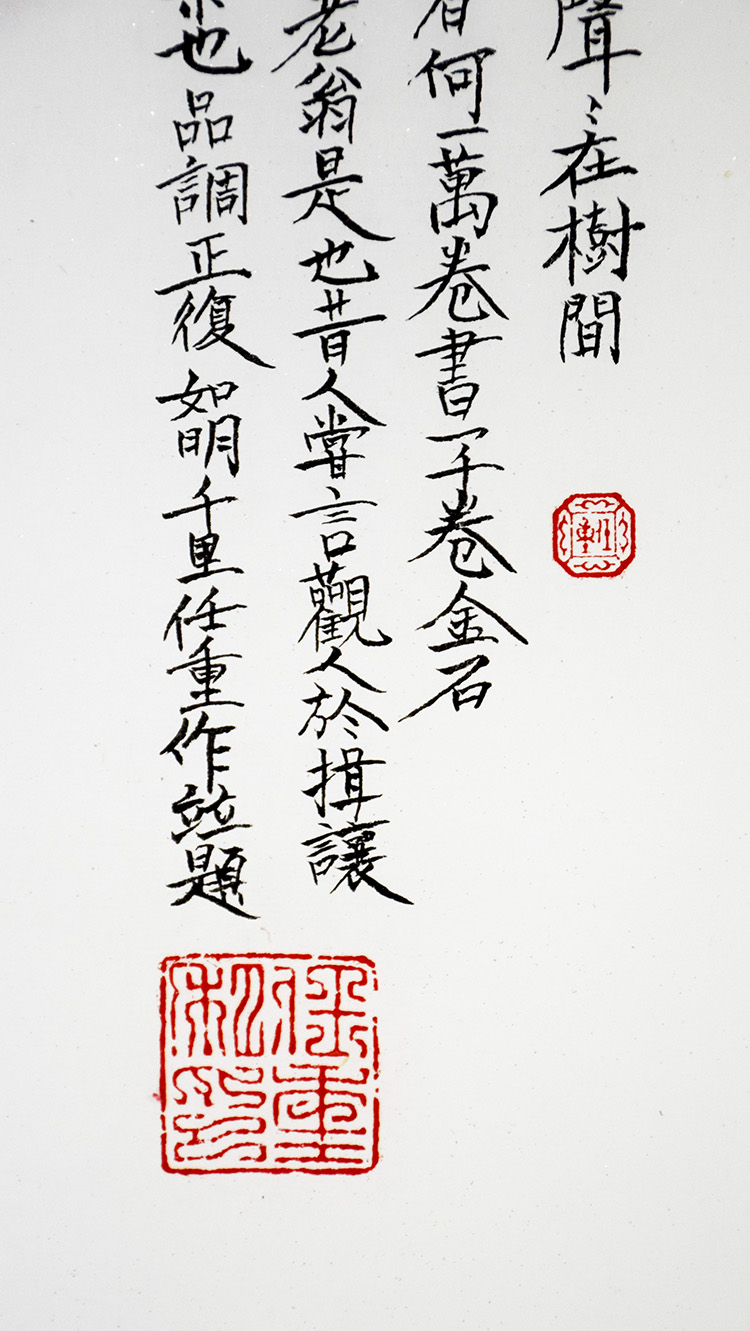 聲〻在樹間
者何一萬卷書一千卷金石
老翁是也昔人嘗言觀人於揖讓
也品調正復如明千里任重作並題
任重
任重私印